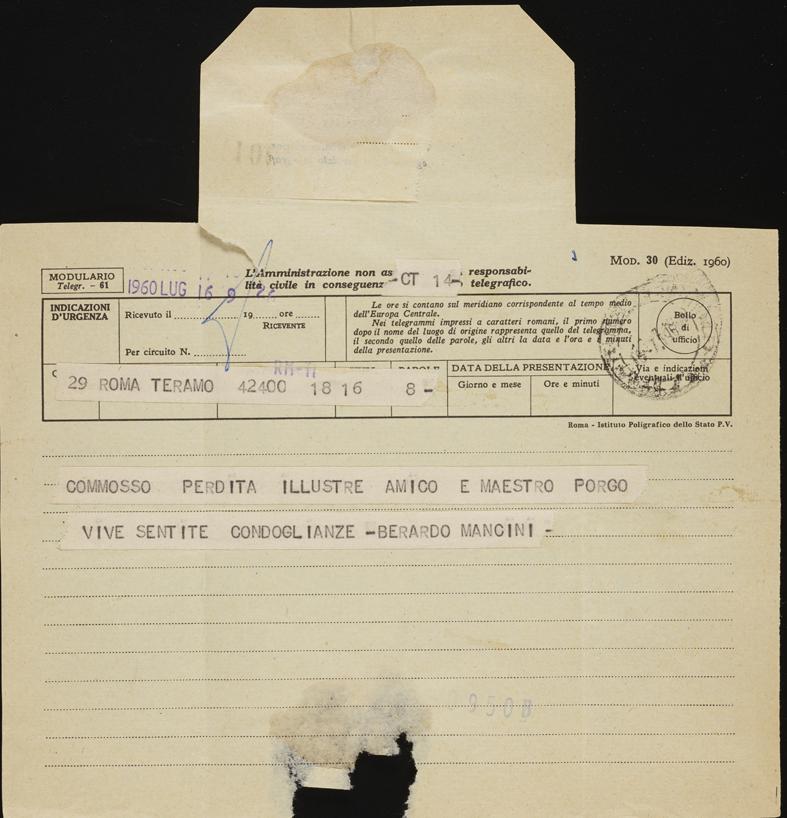 MOD. 30 (Ediz. 1960)
MODULARIO
Telegr. - 61
1960 LUG 16
L'Amministrazione non as
responsabi-
lità civile in conseguenz
-CT 14-
telegrafico.
INDICAZIONI
D'URGENZA
Ricevuto il 19 ore
RICEVENTE
Per circuito N.
Le ore si contano sul meridiano corrispondente al tempo medio
dell'Europa Centrale.
Nei telegrammi impressi a caratteri romani, il primo numero
dopo il nome del luogo di origine rappresenta quello del telegramma,
il secondo quello delle parole, gli altri la data e l'ora e i minuti
della presentazione.
Bollo
di
ufficio
29 ROMA TERAMO 42400 18 16 8 -
DATA DELLA PRESENTAZIONE
Giorno e mese
Ore e minuti
Via e indicazioni
eventuali d'ufficio
Roma - Istituto Poligrafico dello Stato P.V.
COMMOSSO PERDITA ILLUSTRE AMICO E MAESTRO PORGO
VIVE SENTITE CONDOGLIANZE -BERARDO MANCINI -